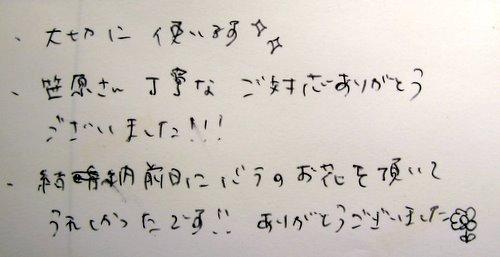 、大切に使います
、笹原さん 丁寧な ご対応ありがとう
ございました!!!
、結納前日にバラのお花を頂いて
うれしかったです!! ありがとうございました